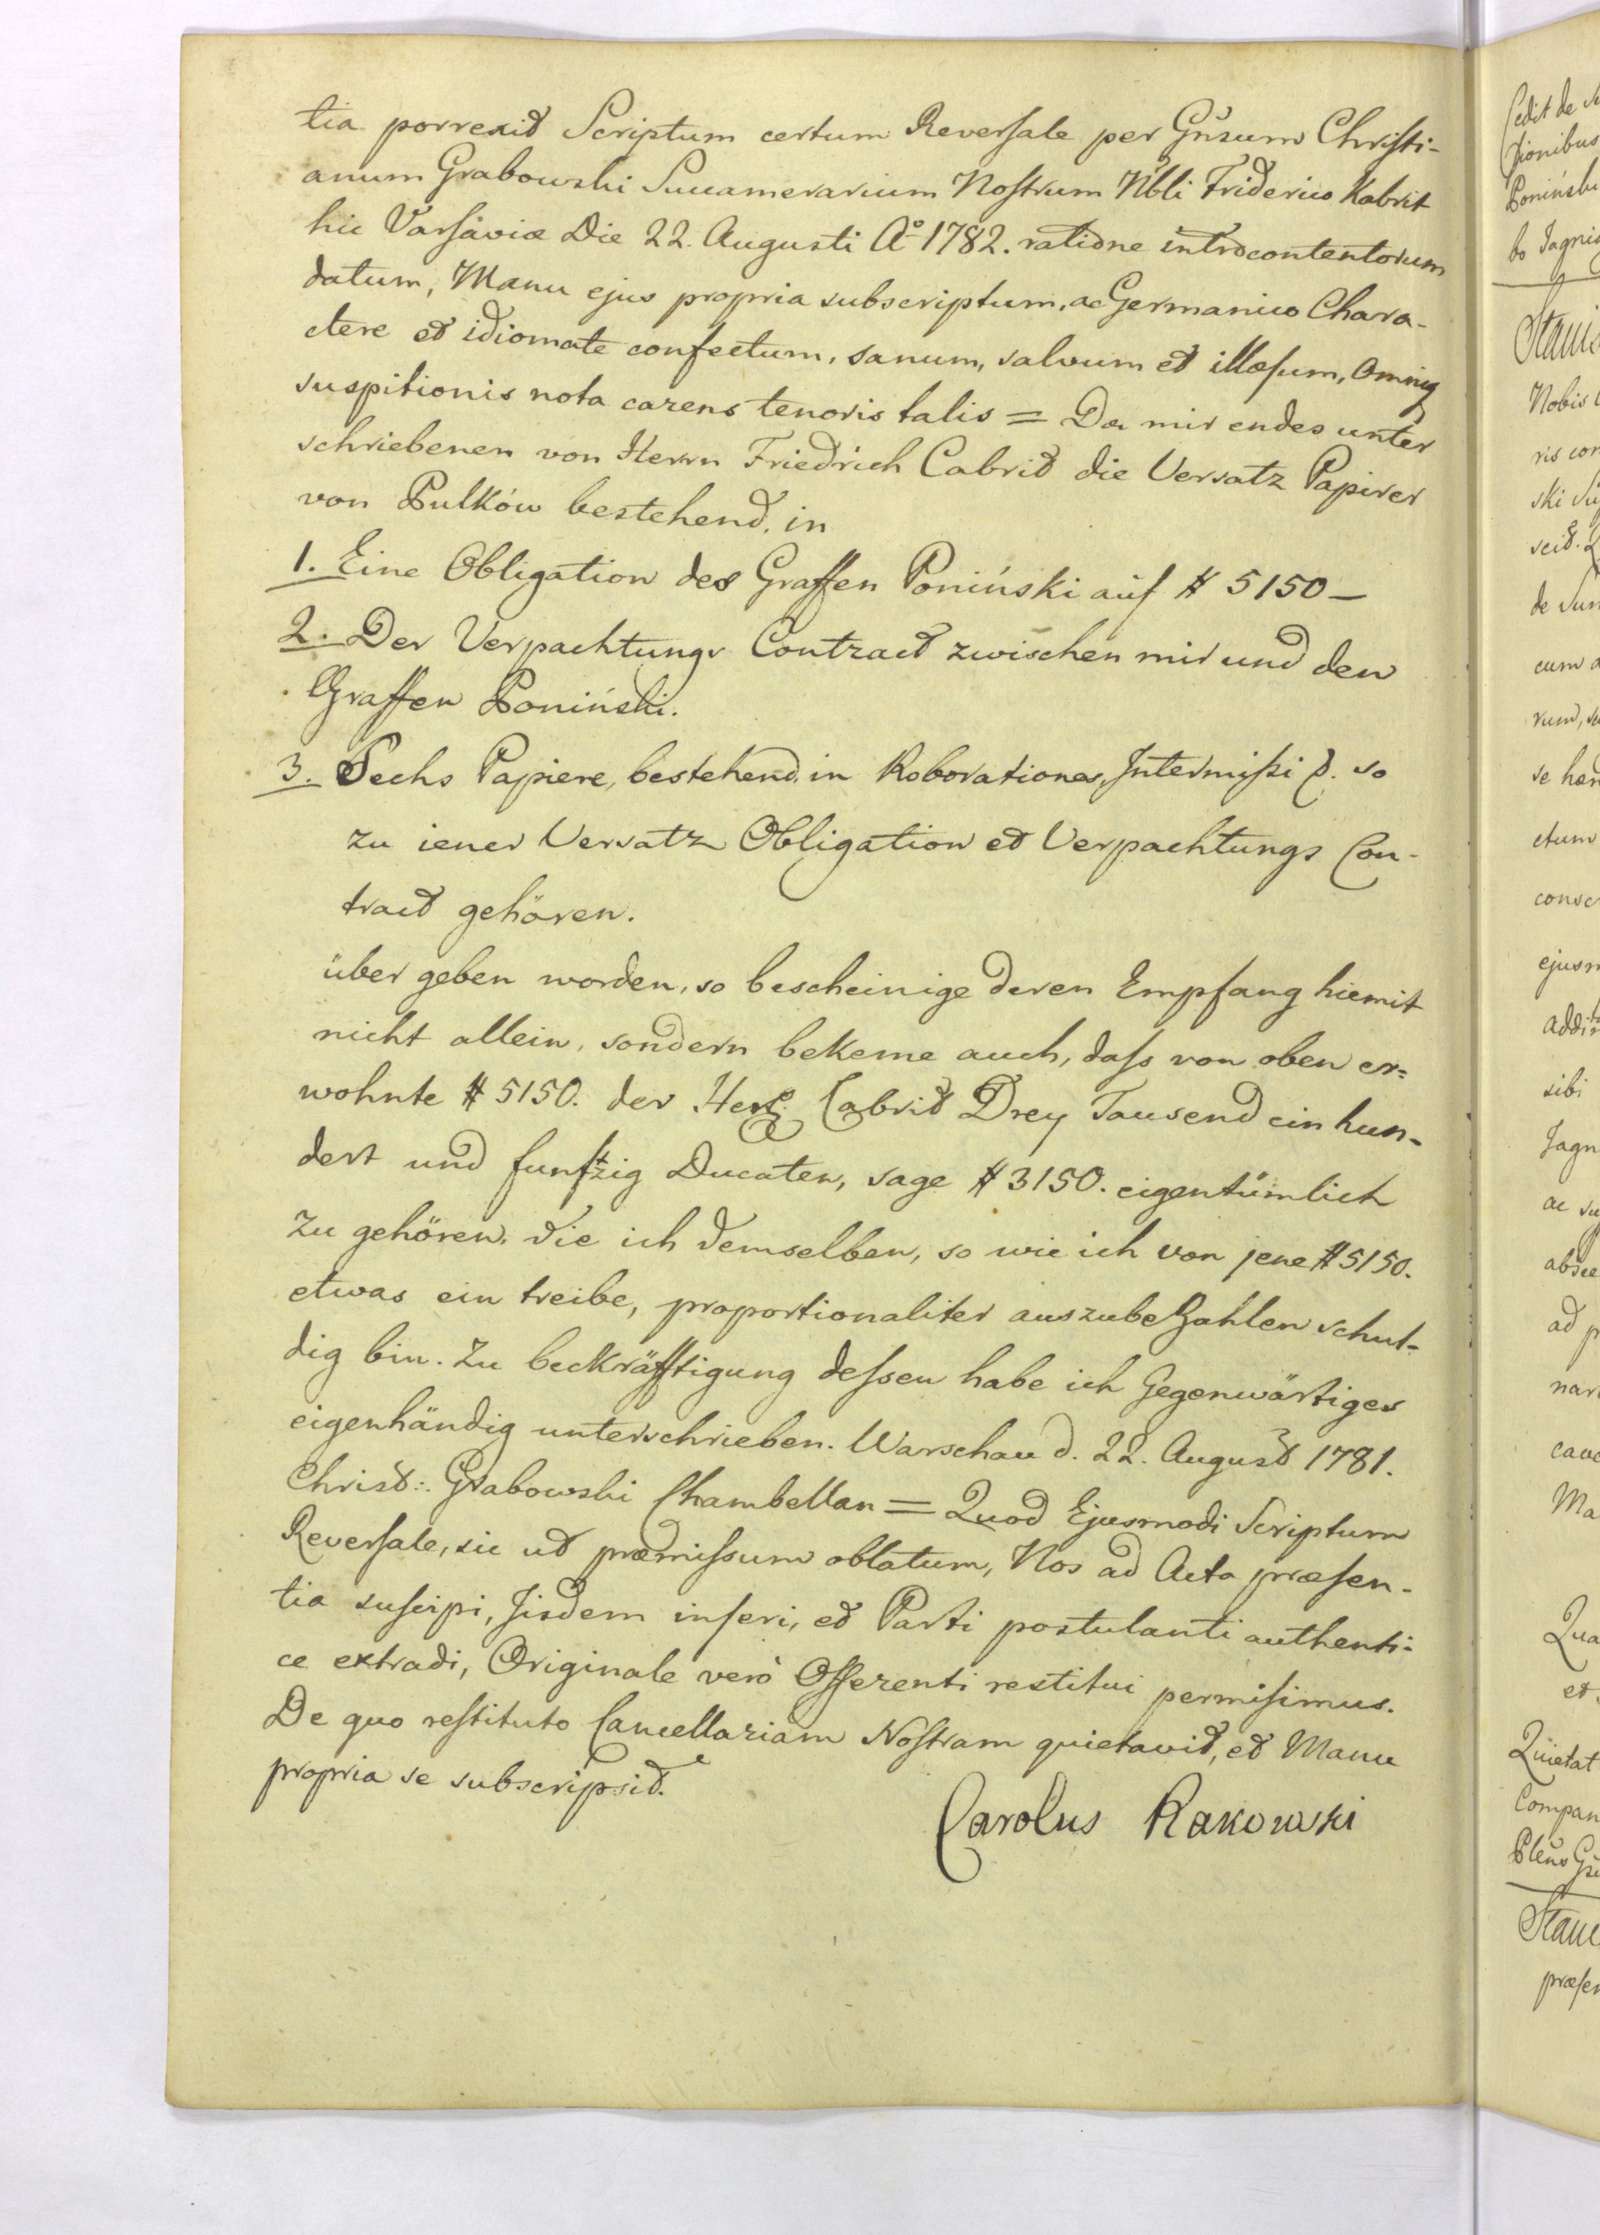 tia porrexit Scriptum certum Reversale per Gn̄sum Christi-
anum Grabowski Succamerarium Nostrum Nbli Friderico Kabrit
hic Varsaviæ Die 22. Augusti Aº 1782. ratione introcontentorum
datum, Manu ejus propria subscriptum, ac Germanico Chara-
ctere et idiomate confectum, sanum, salvum et illæsum, Omniq
suspitionis nota carens tenoris talis = Da mir endes unter
schriebenen von Herrn Friedrich Cabrit die Versatz Papirer
von Pulków bestehend. in
1. Eine Obligation des Graffen Poniński auf # 5150 —
2. Der Verpachtungs Contract zwischen mir und den
Graffen Poniński.
3. Sechs Papiere, bestehend. in Roborationes, Intermissi &. so
zu iener Versatz Obligation et Verpachtungs Con-
tract gehören.
über geben worden, so bescheinige deren Empfang hiemit
nicht allein, sondern bekeme auch, dass von oben er=
wohnte # 5150. der Herr Cabrit Drey Tausend ein hun-
dert und funftzig Ducaten, sage # 3150. eigentümlich
zu gehören, die ich demselben, so wie ich von jene # 5150.
etwas ein treibe, proportionaliter auszubezahlen schul-
dig bin. Zu beckräfftigung dessen habe ich Gegenwärtiges
eigenhändig unterschrieben. Warschau d. 22. August 1781.
Christ:. Grabowski Chambellan = Quod Ejusmodi Scriptum
Reversale, sic ut præmissum oblatum, Nos ad Acta præsen-
tia suscipi, Iisdem inseri, et Parti postulanti authenti-
ce extradi, Originale verò Offerenti restitui permisimus.
De quo restituto Cancellariam Nostram quietavit, et Manu
propria se subscripsit.
Carolus Rakowski